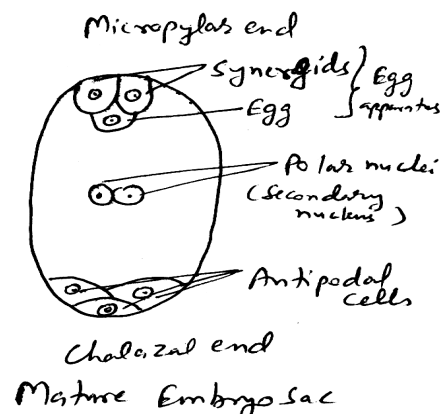 Micropylar end
Synergids } Egg apparatus
Egg
Polar nuclei
(Secondary nucleus)
Antipodal cells
Chalazal end
Mature Embryo sac